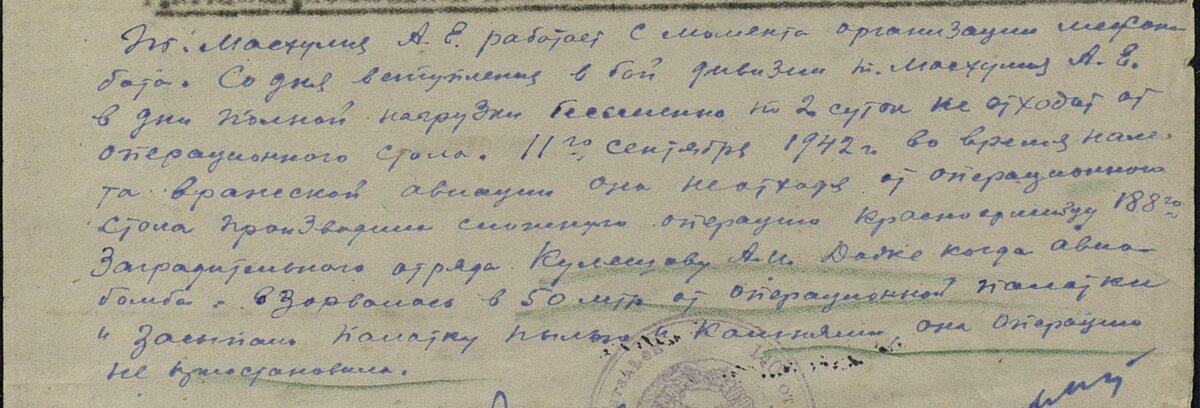 т. Масхулия А. Е. работает с момента организации медсан
бата. Со дня вступления в бой дивизии т. Масхулия А. Е.
в дни полной нагрузки бессменно по 2 суток не отходат от
операционного стола. 11го сентября 1942 г. во время нале-
та вражеской авиации она не отходя от операционного
стола производила сложную операцию красноармейцу 188го
Заградительного отряда Кулешову А.И. Даже когда авиа-
бомба. взорвалась в 50 мтр от операционной палатки
и засыпало палатку пылью и камнями, она операцию
не приостановила.